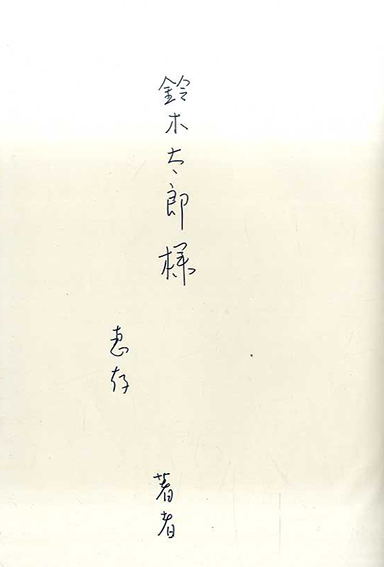 鈴木太郎様
恵存
著者